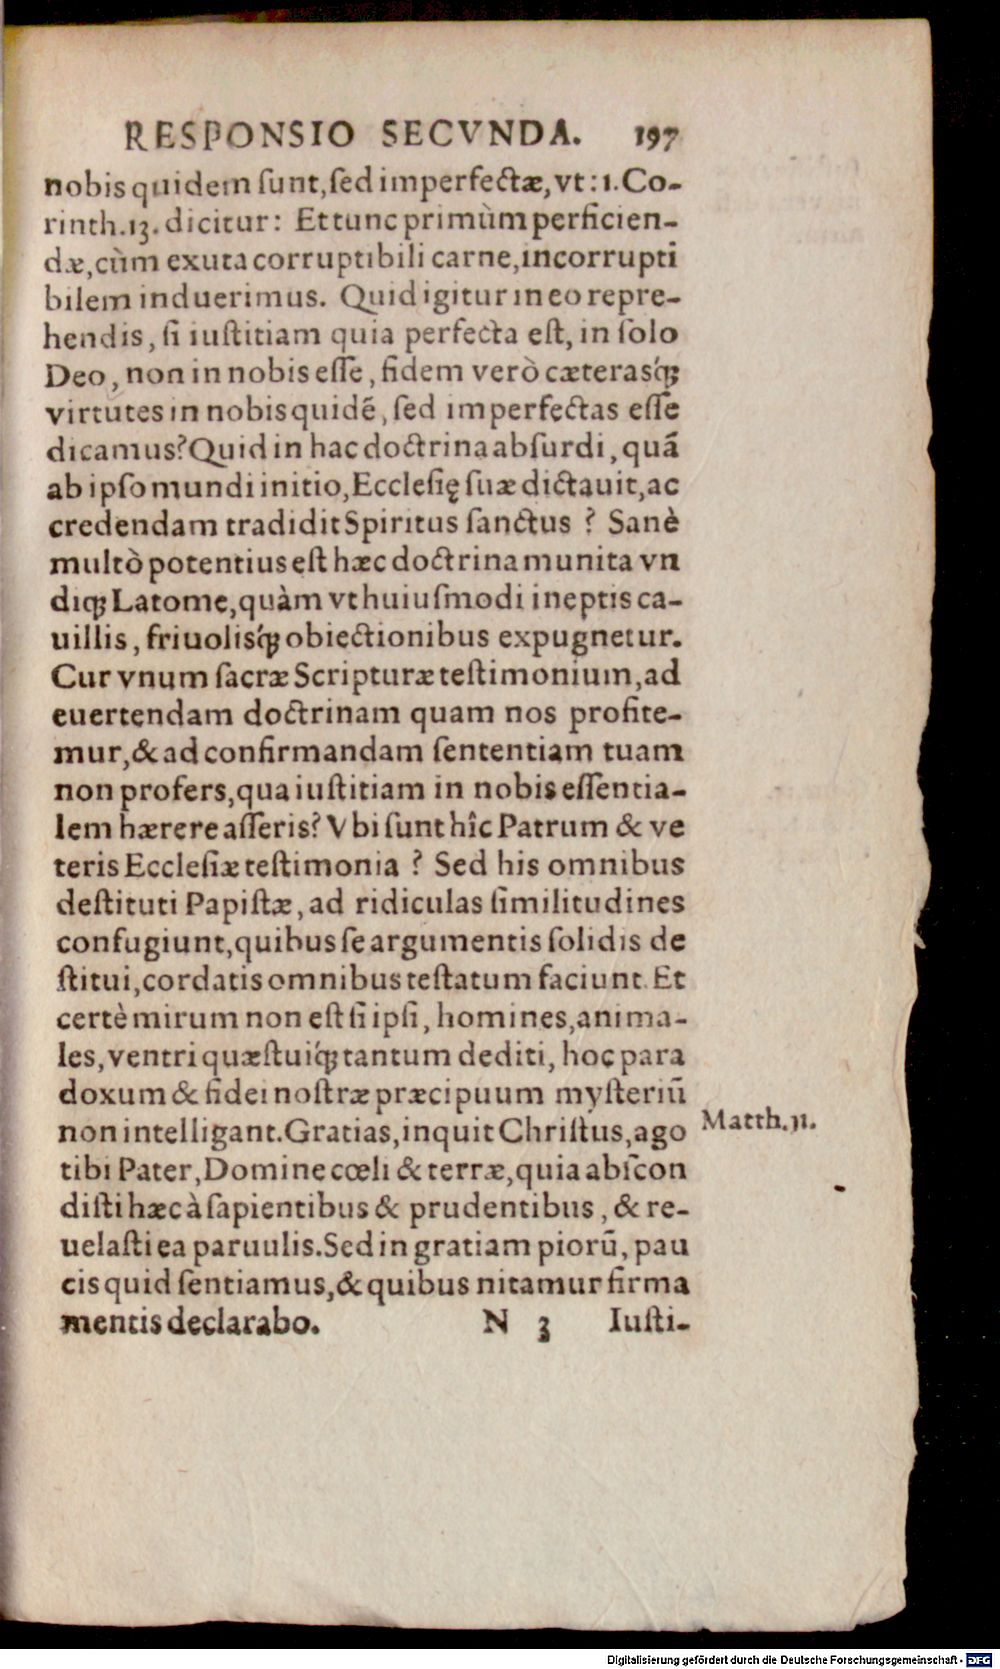 RESPONSIO SECVNDA. 197
nobis quidem ſunt, ſed imperfectæ, vt: 1. Co-
rinth. 13. dicitur: Et tunc primùm perficien-
dæ, cùm exuta corruptibili carne, incorrupti
bilem induerimus. Quid igitur in eo repre-
hendis, ſi iuſtitiam quia perfecta eſt, in ſolo
Deo, non in nobis eſſe, fidem verò cæteraśq́ꝫ
virtutes in nobis quidē, ſed imperfectas eſſe
dicamus? Quid in hac doctrina abſurdi, quā
ab ipſo mundi initio, Eccleſię ſuæ dictauit, ac
credendam tradidit Spiritus ſanctus ? Sanè
multò potentius eſt hæc doctrina munita vn
diqꝫ Latome, quàm vt huiuſmodi ineptis ca-
uillis, friuolisq́ꝫ obiectionibus expugnetur.
Cur vnum ſacræ Scripturæ teſtimonium, ad
euertendam doctrinam quam nos profite-
mur, & ad confirmandam ſententiam tuam
non profers, qua iuſtitiam in nobis eſſentia-
lem hærere aſſeris? Vbi ſunt hîc Patrum & ve
teris Eccleſiæ teſtimonia ? Sed his omnibus
deſtituti Papiſtæ, ad ridiculas ſimilitudines
confugiunt, quibus ſe argumentis ſolidis de
ſtitui, cordatis omnibus teſtatum faciunt. Et
certè mirum non eſt ſi ipſi, homines, anima-
les, ventri quæſtuiq́ꝫ tantum dediti, hoc para
doxum & fidei noſtræ præcipuum myſteriū
non intelligant. Gratias, inquit Chriſtus, ago
Matth. 11.
tibi Pater, Domine cœli & terræ, quia abſcon
diſti hæc à ſapientibus & prudentibus, & re-
uelaſti ea paruulis. Sed in gratiam piorū, pau
cis quid ſentiamus, & quibus nitamur firma
mentis declarabo. N 3 Iuſti-
Digitalisierung gefördert durch die Deutsche Forschungsgemeinschaft - DFG